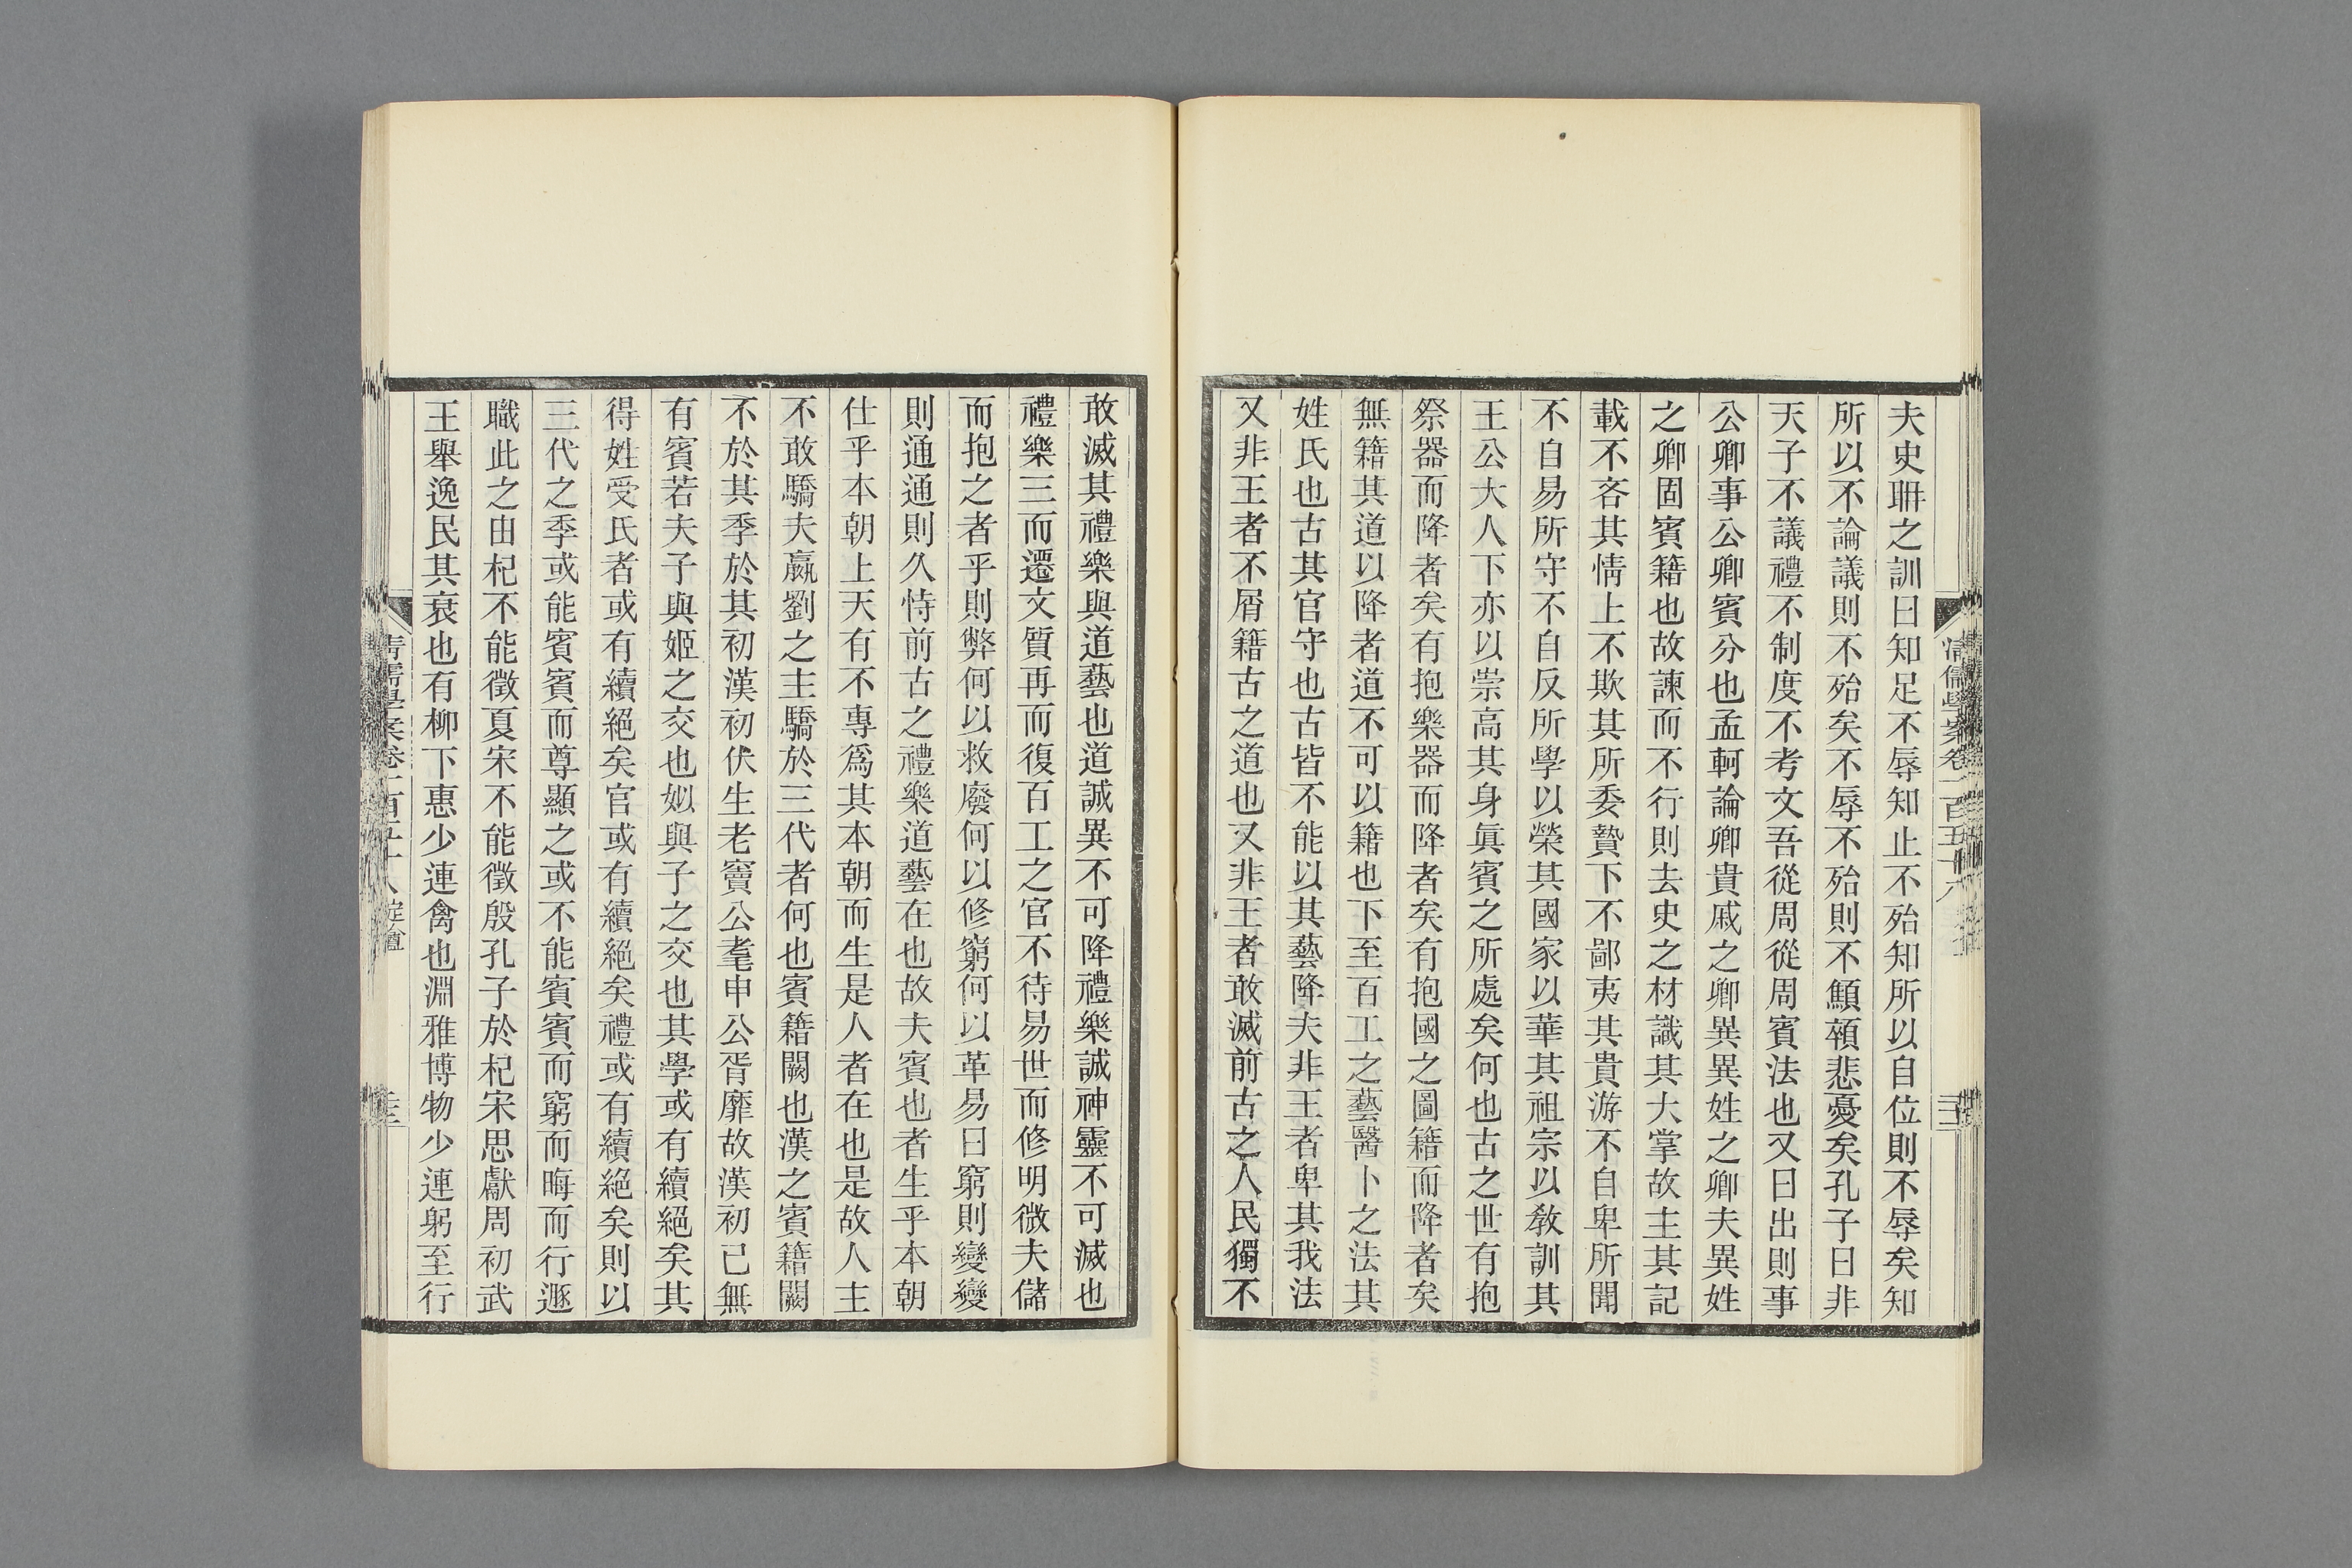 夫史聃之訓曰知足不辱知止不殆知所以自位則不辱矣知
所以不論議則不殆矣不辱不殆則不顦顇悲憂矣孔子曰非
天子不議禮不制度不考文吾從周從周賓法也又曰出則事
公卿事公卿賓分也孟軻論卿貴戚之卿異異姓之卿夫異姓
之卿固賓籍也故諫而不行則去史之材識其大掌故主其記
載不吝其情上不欺其所委贄下不鄙夷其貴游不自卑所聞
不自易所守不自反所學以榮其國家以華其祖宗以敎訓其
王公大人下亦以崇高其身眞賓之所處矣何也古之世有抱
祭器而降者矣有抱樂器而降者矣有抱國之圖籍而降者矣
無籍其道以降者道不可以籍也下至百工之藝醫卜之法其
姓氏也古其官守也古皆不能以其藝降夫非王者卑其我法
又非王者不屑籍古之道也又非王者敢滅前古之人民獨不
清儒學案卷一百五十八
敢滅其禮樂與道藝也道誠異不可降禮樂誠神靈不可滅也
禮樂三而遷文質再而復百工之官不待易世而修明微夫儲
而抱之者乎則弊何以救廢何以修窮何以革易曰窮則變變
則通通則久恃前古之禮樂道藝在也故夫賓也者生乎本朝
仕乎本朝上天有不專爲其本朝而生是人者在也是故人主
不敢驕夫嬴劉之主驕於三代者何也賓籍闕也漢之賓籍闕
不於其季於其初漢初伏生老竇公耄申公胥靡故漢初已無
有賓若夫子與姬之交也姒與子之交也其學或有續絕矣其
得姓受氏者或有續絕矣官或有續絕矣禮或有續絕矣則以
三代之季或能賓賓而尊顯之或不能賓賓而窮而晦而行遯
職此之由杞不能徵夏宋不能徵殷孔子於杞宋思獻周初武
王舉逸民其衰也有柳下惠少連禽也淵雅博物少連躬至行
清儒學案卷一百五十八 定盦